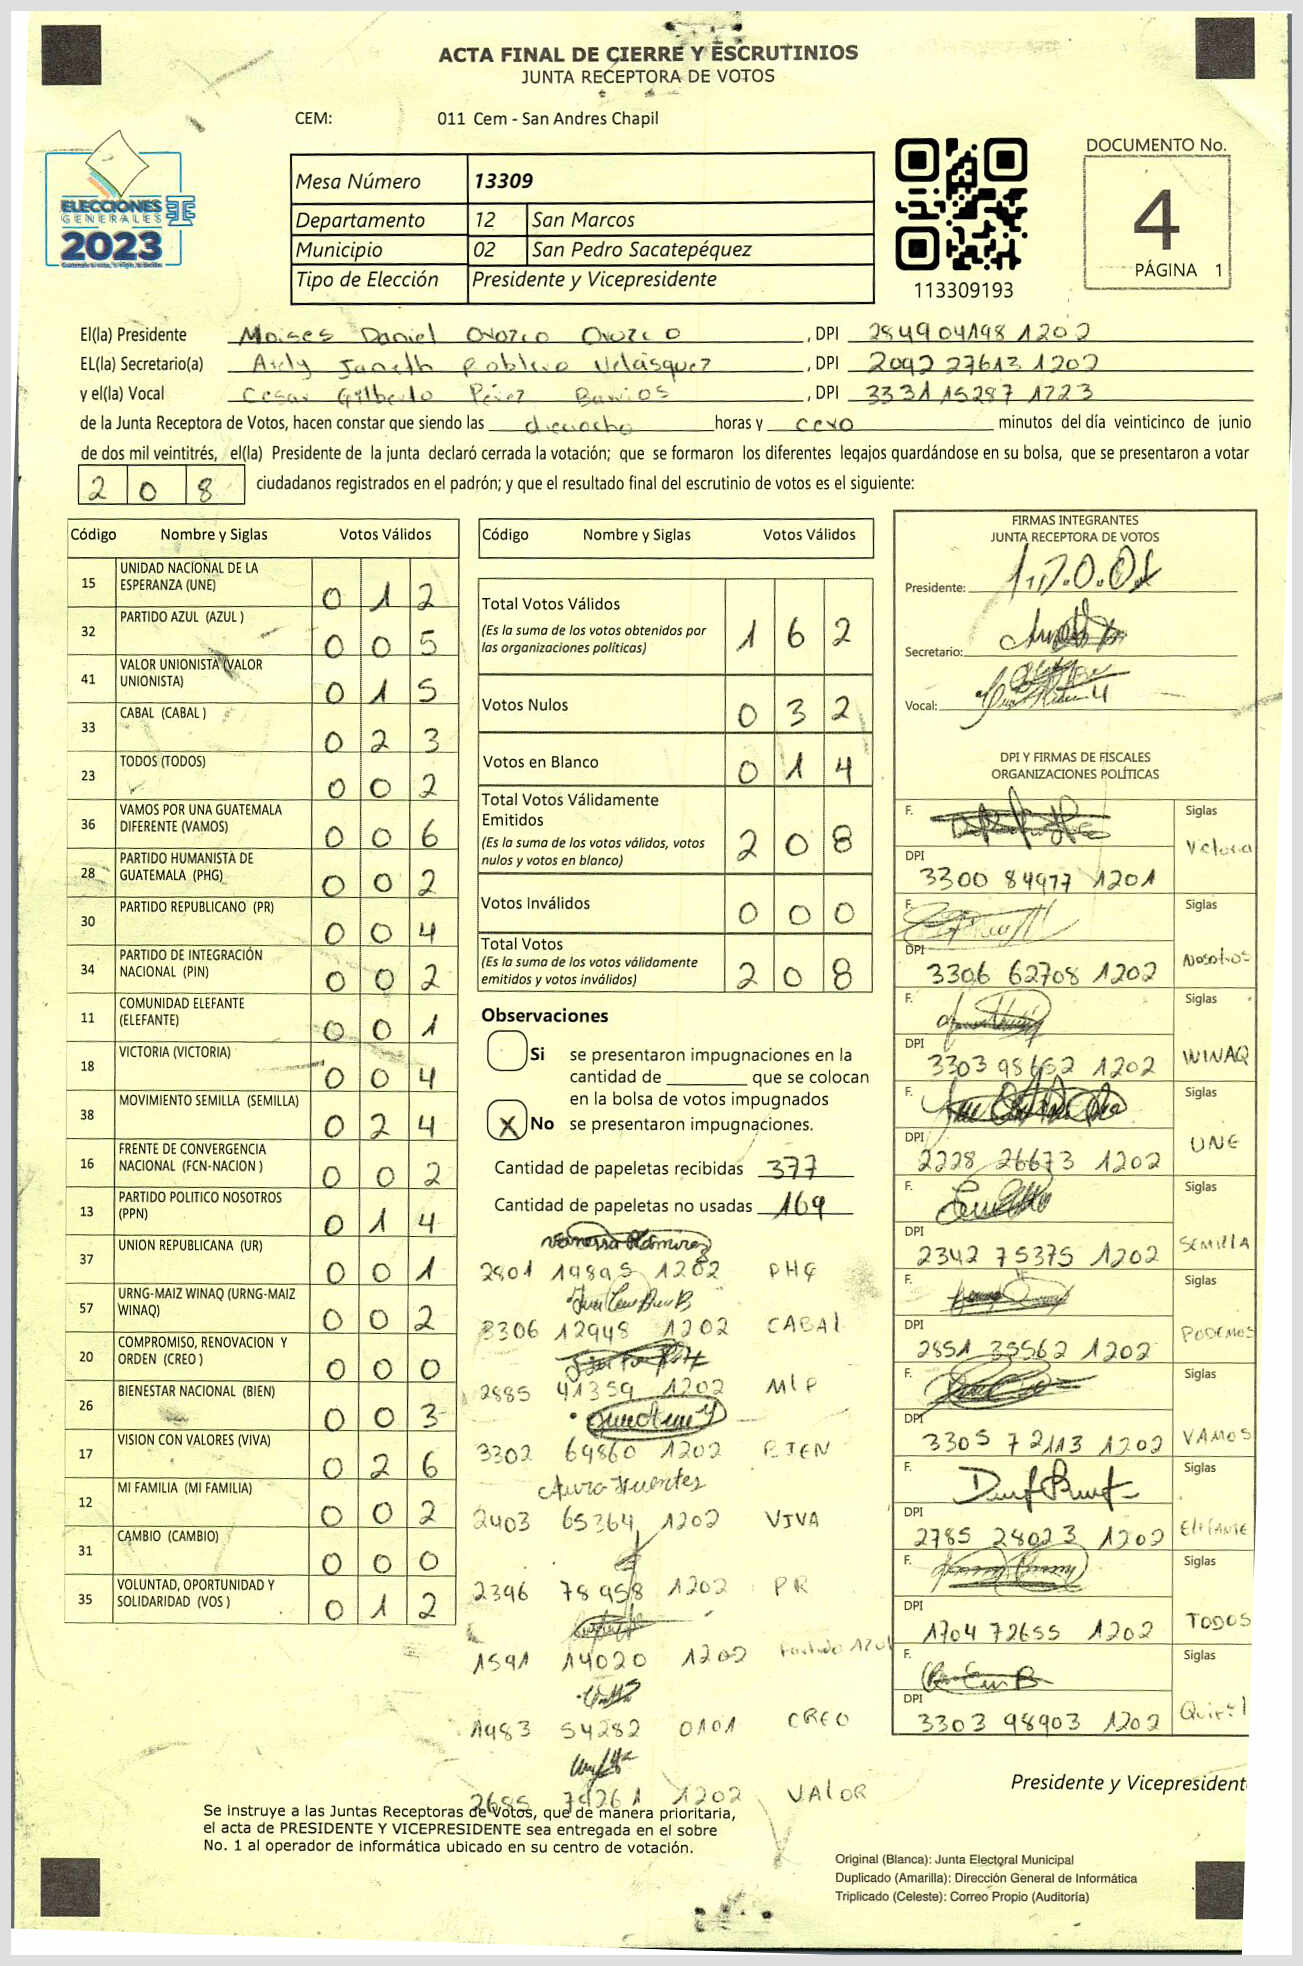 ACTA FINAL DE CIERRE Y ESCRUTINIOS
JUNTA RECEPTORA DE VOTOS
CEM: 011 Cem - San Andres Chapil
ELECCIONES
GENERALES
2023
Mesa Número 13309
Departamento 12 San Marcos
Municipio 02 San Pedro Sacatepéquez
Tipo de Elección Presidente y Vicepresidente
113309193
DOCUMENTO No.
4
PÁGINA 1
El(la) Presidente Moises Daniel Orozco Orozco , DPI 284904198 1202
EL(la) Secretario(a) Arely Janeth Robledo Velásquez , DPI 2092 27613 1202
y el(la) Vocal Cesar Gilberto Pérez Barrios , DPI 3331 15287 1223
de la Junta Receptora de Votos, hacen constar que siendo las dieciocho horas y cero minutos del día veinticinco de junio
de dos mil veintitrés, el(la) Presidente de la junta declaró cerrada la votación; que se formaron los diferentes legajos guardándose en su bolsa, que se presentaron a votar
208 ciudadanos registrados en el padrón; y que el resultado final del escrutinio de votos es el siguiente:
Código Nombre y Siglas Votos Válidos
15 UNIDAD NACIONAL DE LA ESPERANZA (UNE) 0 1 2
32 PARTIDO AZUL (AZUL ) 0 0 5
41 VALOR UNIONISTA (VALOR UNIONISTA) 0 1 5
33 CABAL (CABAL ) 0 2 3
23 TODOS (TODOS) 0 0 2
36 VAMOS POR UNA GUATEMALA DIFERENTE (VAMOS) 0 0 6
28 PARTIDO HUMANISTA DE GUATEMALA (PHG) 0 0 2
30 PARTIDO REPUBLICANO (PR) 0 0 4
34 PARTIDO DE INTEGRACIÓN NACIONAL (PIN) 0 0 2
11 COMUNIDAD ELEFANTE (ELEFANTE) 0 0 1
18 VICTORIA (VICTORIA) 0 0 4
38 MOVIMIENTO SEMILLA (SEMILLA) 0 2 4
16 FRENTE DE CONVERGENCIA NACIONAL (FCN-NACION ) 0 0 2
13 PARTIDO POLITICO NOSOTROS (PPN) 0 1 4
37 UNION REPUBLICANA (UR) 0 0 1
57 URNG-MAIZ WINAQ (URNG-MAIZ WINAQ) 0 0 2
20 COMPROMISO, RENOVACION Y ORDEN (CREO ) 0 0 0
26 BIENESTAR NACIONAL (BIEN) 0 0 3
17 VISION CON VALORES (VIVA) 0 2 6
12 MI FAMILIA (MI FAMILIA) 0 0 2
31 CAMBIO (CAMBIO) 0 0 0
35 VOLUNTAD, OPORTUNIDAD Y SOLIDARIDAD (VOS ) 0 1 2
Código Nombre y Siglas Votos Válidos
Total Votos Válidos 1 6 2
(Es la suma de los votos obtenidos por
las organizaciones políticas)
Votos Nulos 0 3 2
Votos en Blanco 0 1 4
Total Votos Válidamente
Emitidos 2 0 8
(Es la suma de los votos válidos, votos
nulos y votos en blanco)
Votos Inválidos 0 0 0
Total Votos 2 0 8
(Es la suma de los votos válidamente
emitidos y votos inválidos)
Observaciones
Si se presentaron impugnaciones en la
cantidad de ________ que se colocan
en la bolsa de votos impugnados
X No se presentaron impugnaciones.
Cantidad de papeletas recibidas 377
Cantidad de papeletas no usadas 169
Vanessa Ramirez
2801 19895 1202 PHG
3306 12948 1202 CABAL
2885 41359 1202 MLP
3302 69860 1202 BIEN
Fuentes
2403 65364 1202 VIVA
2396 78958 1202 PR
1591 14020 1202 Partido AZUL
1983 54282 0101 CREO
2685 79261 1202 VALOR
FIRMAS INTEGRANTES
JUNTA RECEPTORA DE VOTOS
Presidente:
Secretario:
Vocal:
DPI Y FIRMAS DE FISCALES
ORGANIZACIONES POLÍTICAS
F. Siglas
DPI 3300 84977 1201 Victoria
F. Siglas
DPI 3306 62708 1202 Nosotros
F. Siglas
DPI 3303 98652 1202 WINAQ
F. Siglas
DPI 2228 26673 1202 UNE
F. Siglas
DPI 2342 75375 1202 SEMILLA
F. Siglas
DPI 2851 35562 1202 PODEMOS
F.
DPI 3305 72113 1202 VAMOS
F. Siglas
DPI 2785 28023 1202 Elefante
F. Siglas
DPI 1704 72655 1202 TODOS
F. Siglas
DPI 3303 98903 1202
Presidente y Vicepresident
Se instruye a las Juntas Receptoras de Votos, que de manera prioritaria,
el acta de PRESIDENTE Y VICEPRESIDENTE sea entregada en el sobre
No. 1 al operador de informática ubicado en su centro de votación.
Original (Blanca): Junta Electoral Municipal
Duplicado (Amarilla): Dirección General de Informática
Triplicado (Celeste): Correo Propio (Auditoría)